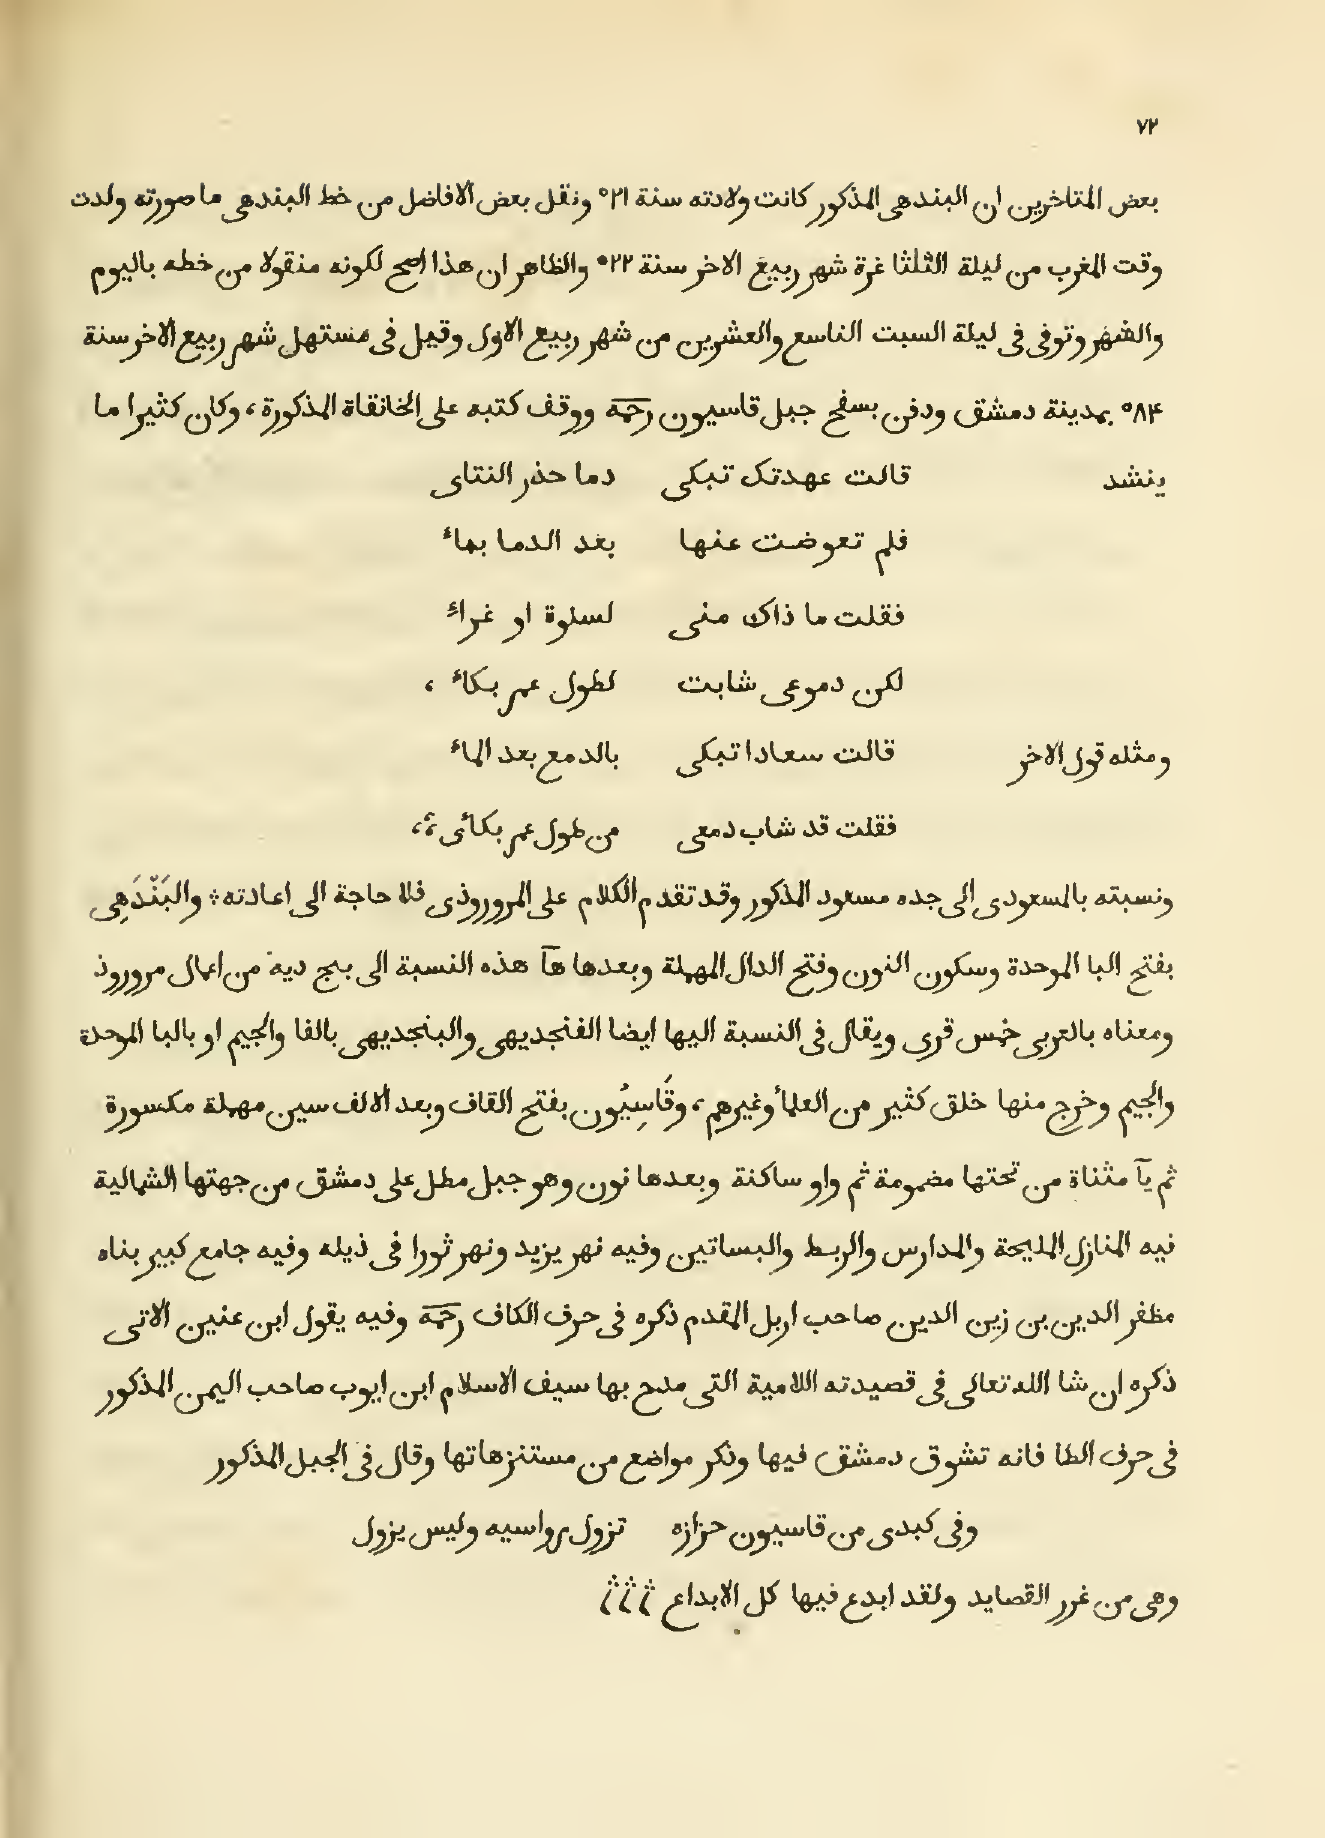 ٧٢
بعض المتاخرين ان البندهى المذكور كانت ولادته سنة ٥٢١ ونقل بعض الافاضل من خط البندهى ما صورته ولدت
وقت المغرب من ليلة الثلثا غرة شهر ربيع الاخر سنة ٥٢٢ والظاهر ان هذا اصح لكونه منقولا من خطه باليوم
والشهر وتوفى فى ليلة السبت التاسع والعشرين من شهر ربيع الاول وقيل فى مستهل شهر ربيع الاخر سنة
٥٨۴ بمدينة دمشق ودفن بسفح جبل قاسيون رحمه ووقف كتبه على الخانقاة المذكورة، وكان كثيرا ما
ينشد قالت عهدتك تبكى دما حذر التناى
فلم تعوضت عنها بعد الدما بماء
فقلت ما ذاك منى لسلوة او غراء
لكن دموعى شابت لطول عمر بكاء ،
ومثله قول الاخر قالت سعادا تبكى بالدمع بعد الماء
فقلت قد شاب دمعى من طول عمر بكائى ؛،
ونسبته بالمسعودى الى جده مسعود المذكور وقد تقدم الكلام على المروروذى فلا حاجة الى اعادته ؛ والبَنْدَهِى
بفتح البا الموحدة وسكون النون وفتح الدال المهملة وبعدها هآ هذه النسبة الى بنج ديه من اعمال مروروذ
ومعناه بالعربى خمس قرى ويقال فى النسبة اليها ايضا الفنجديهى والبنجديهى بالفا والجيم او بالبا الموحدة
والجيم وخرج منها خلق كثير من العلماء وغيرهم، وقَاسِيُون بفتح القاف وبعد الالف سين مهملة مكسورة
ثم يآ مثناة من تحتها مضمومة ثم واو ساكنة وبعدها نون وهو جبل مطل على دمشق من جهتها الشمالية
فيه المنازل المليحة والمدارس والربط والبساتين وفيه نهر يزيد ونهر ثورا فى ذيله وفيه جامع كبير بناه
مظفر الدين بن زين الدين صاحب اربل المقدم ذكره فى حرف الكاف رحمه وفيه يقول ابن عنين الاتى
ذكره ان شا الله تعالى فى قصيدته اللامية التى مدح بها سيف الاسلام ابن ايوب صاحب اليمن المذكور
فى حرف الطا فانه تشوق دمشق فيها وذكر مواضع من مستنزهاتها وقال فى الجبل المذكور
وفى كبدى من قاسيون حزازه تزول رواسيه وليس يزول
وهى من غرر القصايد ولقد ابدع فيها كل الابداع ؛ ؛ ؛